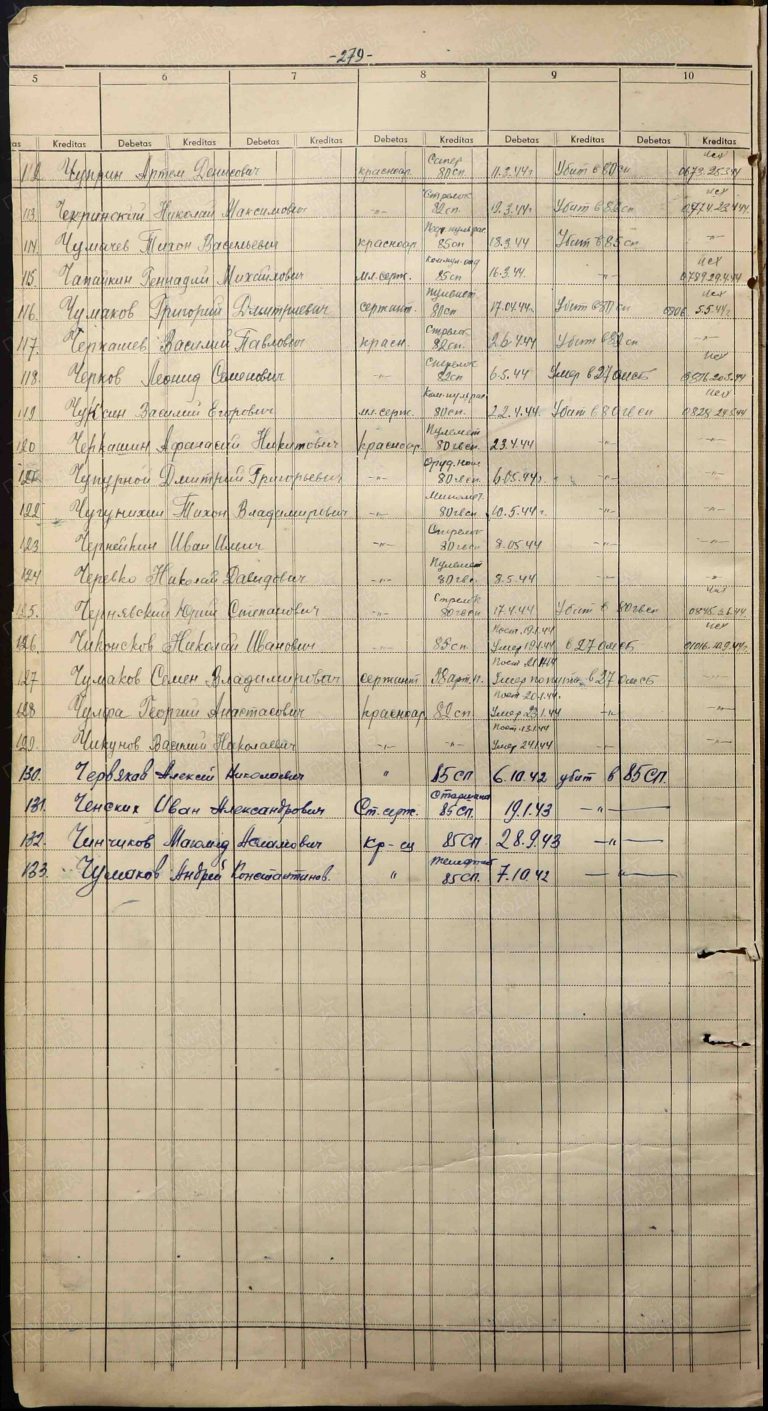 -279-
5 6 7 8 9 10
Kreditas Debetas Kreditas Debetas Kreditas Debetas Kreditas Debetas Kreditas Debetas Kreditas
112 Чуприн Артем Денисович красноар. Сапер 80сп. 11.3.44г Убит в 80сп исх 0673 25.3.44
113. Чекринский Николай Максимович -"- Стрелок 82сп 19.3.44г Убит в 82сп исх
114. Чумачев Тихон Васильевич красноар 85сп 18.3.44 Убит в 85сп -"-
115. Чапайкин Геннадий Михайлович мл.серж. 85сп 16.3.44 -"- исх
116. Чумаков Григорий Дмитриевич сержант. Пулемет 80сп 17.04.44г Убит в 80сп исх 5.5.44г
117. Черкашев Василий Павлович красн. Стрелок 82сп. 26.4.44 Убит в 82сп
118. Черков Леонид Семенович -"- Стрелок 82сп 6.5.44 Умер в 27 омсб исх
119 Чуксин Василий Егорович мл.серж. 80сп. 22.4.44 Убит в 80гвсп исх
120 Черкашин Афанасий Никитович красноар. Пулемет 80гвсп. 23.4.44 -"- -"-
121 Чупурной Дмитрий Григорьевич -"- 80гвсп. 6.05.44г. -"- -"-
122 Чугунихин Тихон Владимирович -"- Миномет. 80гвсп. 10.5.44г. -"- -"-
123 Чернейкин Иван Ильич -"- Стрелок 80гвсп 8.05.44 -"- -"-
124 Черевко Николай Давидович -"- Пулемет 80гвсп. 8.5.44 -"- -"-
125. Чернявский Юрий Степанович -"- Стрелк 80гвсп 17.4.44 Убит в 80гвсп исх
126. Николай Иванович 82сп. Пост. 19.1.44 Умер 19.1.44 в 27 омсб исх 01016.10.9.44г.
127 Чумаков Семен Владимирович сержант Пост 21.1.44 Умер по пути в 27 омсб
128 Чулфа Георгий Анастасович красноар 82сп. Пост 20.1.44. Умер 23.1.44 -"- -"-
129. Чикунов Василий Николаевич -"- -"- Пост. 13.1.44 Умер 24.1.44 -"-
130. Червяхав Алексей Николаевич " 85СП 6.10.42 убит в 85СП.
131. Ченских Иван Александрович Ст. серж. Старшина 85СП. 19.1.43 -"-
132. Чинчиков Магомед Асламович Кр-ец 85СП 28.9.43 -"-
133. Чумаков Андрей Константинов. " 85СП. 7.10.42 -"-